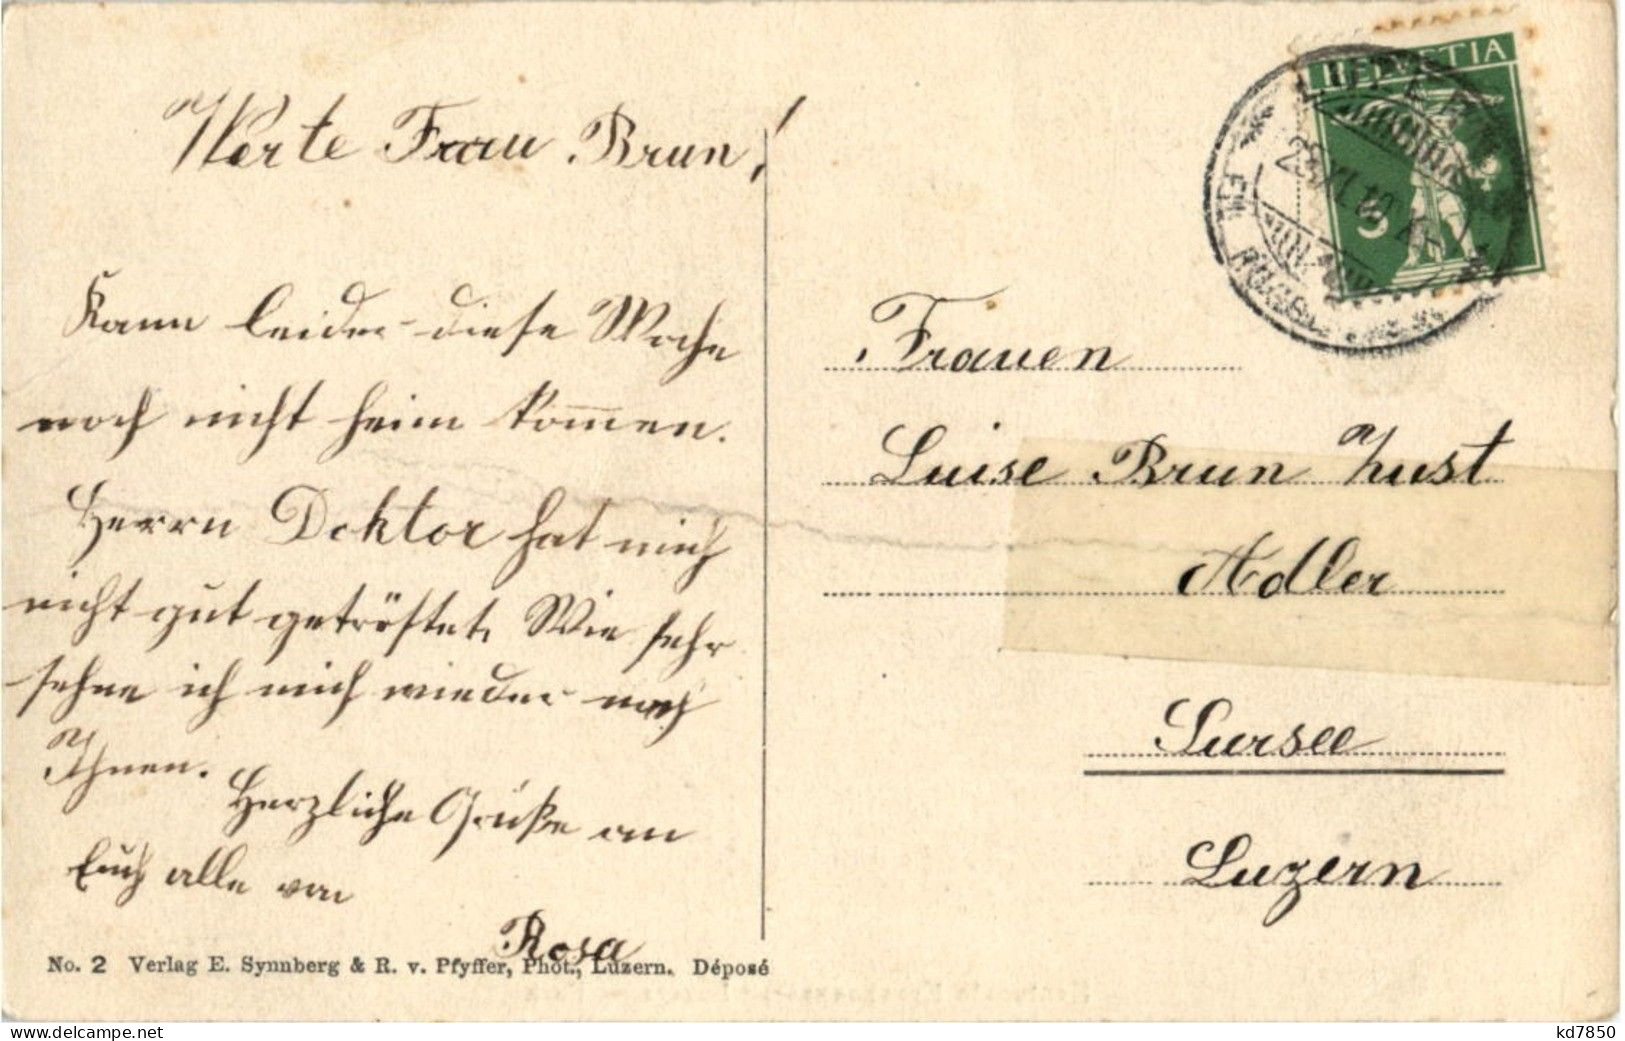 Werte Frau Brun!
Kann leider diese Woche
noch nicht heim kommen.
Herrn Doktor hat mich
nicht gut getröstet. Wie sehr
sehne ich mich wieder nach
Ihnen.
Herzliche Grüße an
Euch alle von
Rosa
No. 2 Verlag E. Synnberg & R. v. Pfyffer, Phot., Luzern. Déposé
HELVETIA
5
LUZERN
Frauen
Luise Brun Zust
Adler
Sursee
Luzern
kd7850